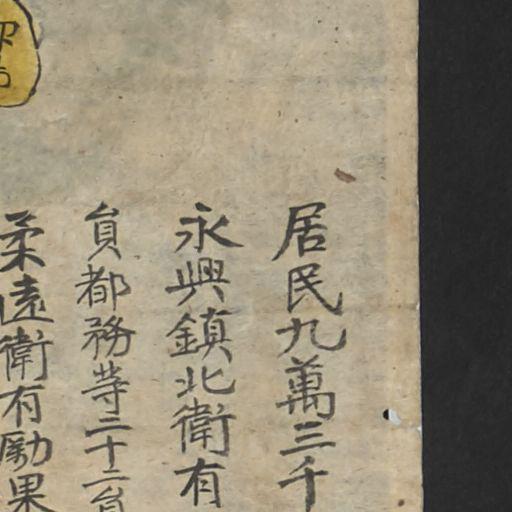 居民九萬三千
永興鎮北衛有
貟都務等二十二貟
柔遠衛有勵果